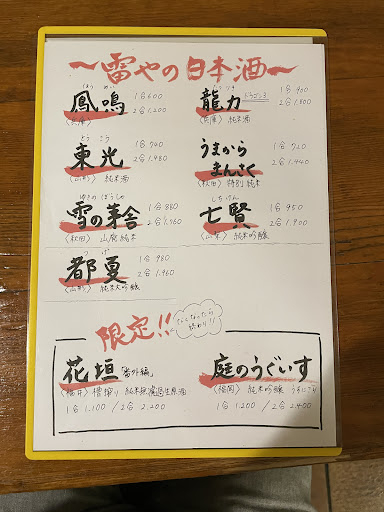 〜雷やの日本酒〜
ほうめい
鳳鳴
1合600
2合1.200
〈兵庫〉
龍力
ドラゴン
1合900
2合1.800
〈兵庫〉 純米酒
とうこう
東光
1合740
2合1.480
〈山形〉 純米酒
うまから
まんさく
1合720
2合1.440
〈秋田〉 特別純米
ゆきのぼうしゃ
雪の茅舎
1合880
2合1.760
〈秋田〉 山廃純米
しちけん
七賢
1合950
2合1.900
〈山梨〉 純米吟醸
都夏
1合980
2合1.960
〈山形〉 純米大吟醸
限定!!
なくなったら
終わり!!
花垣「番外編」
〈福井〉 槽搾り 純米無濾過生原酒
1合1.100 / 2合2.200
庭のうぐいす
〈福岡〉 純米吟醸 うすにごり
1合1.200 / 2合2.400